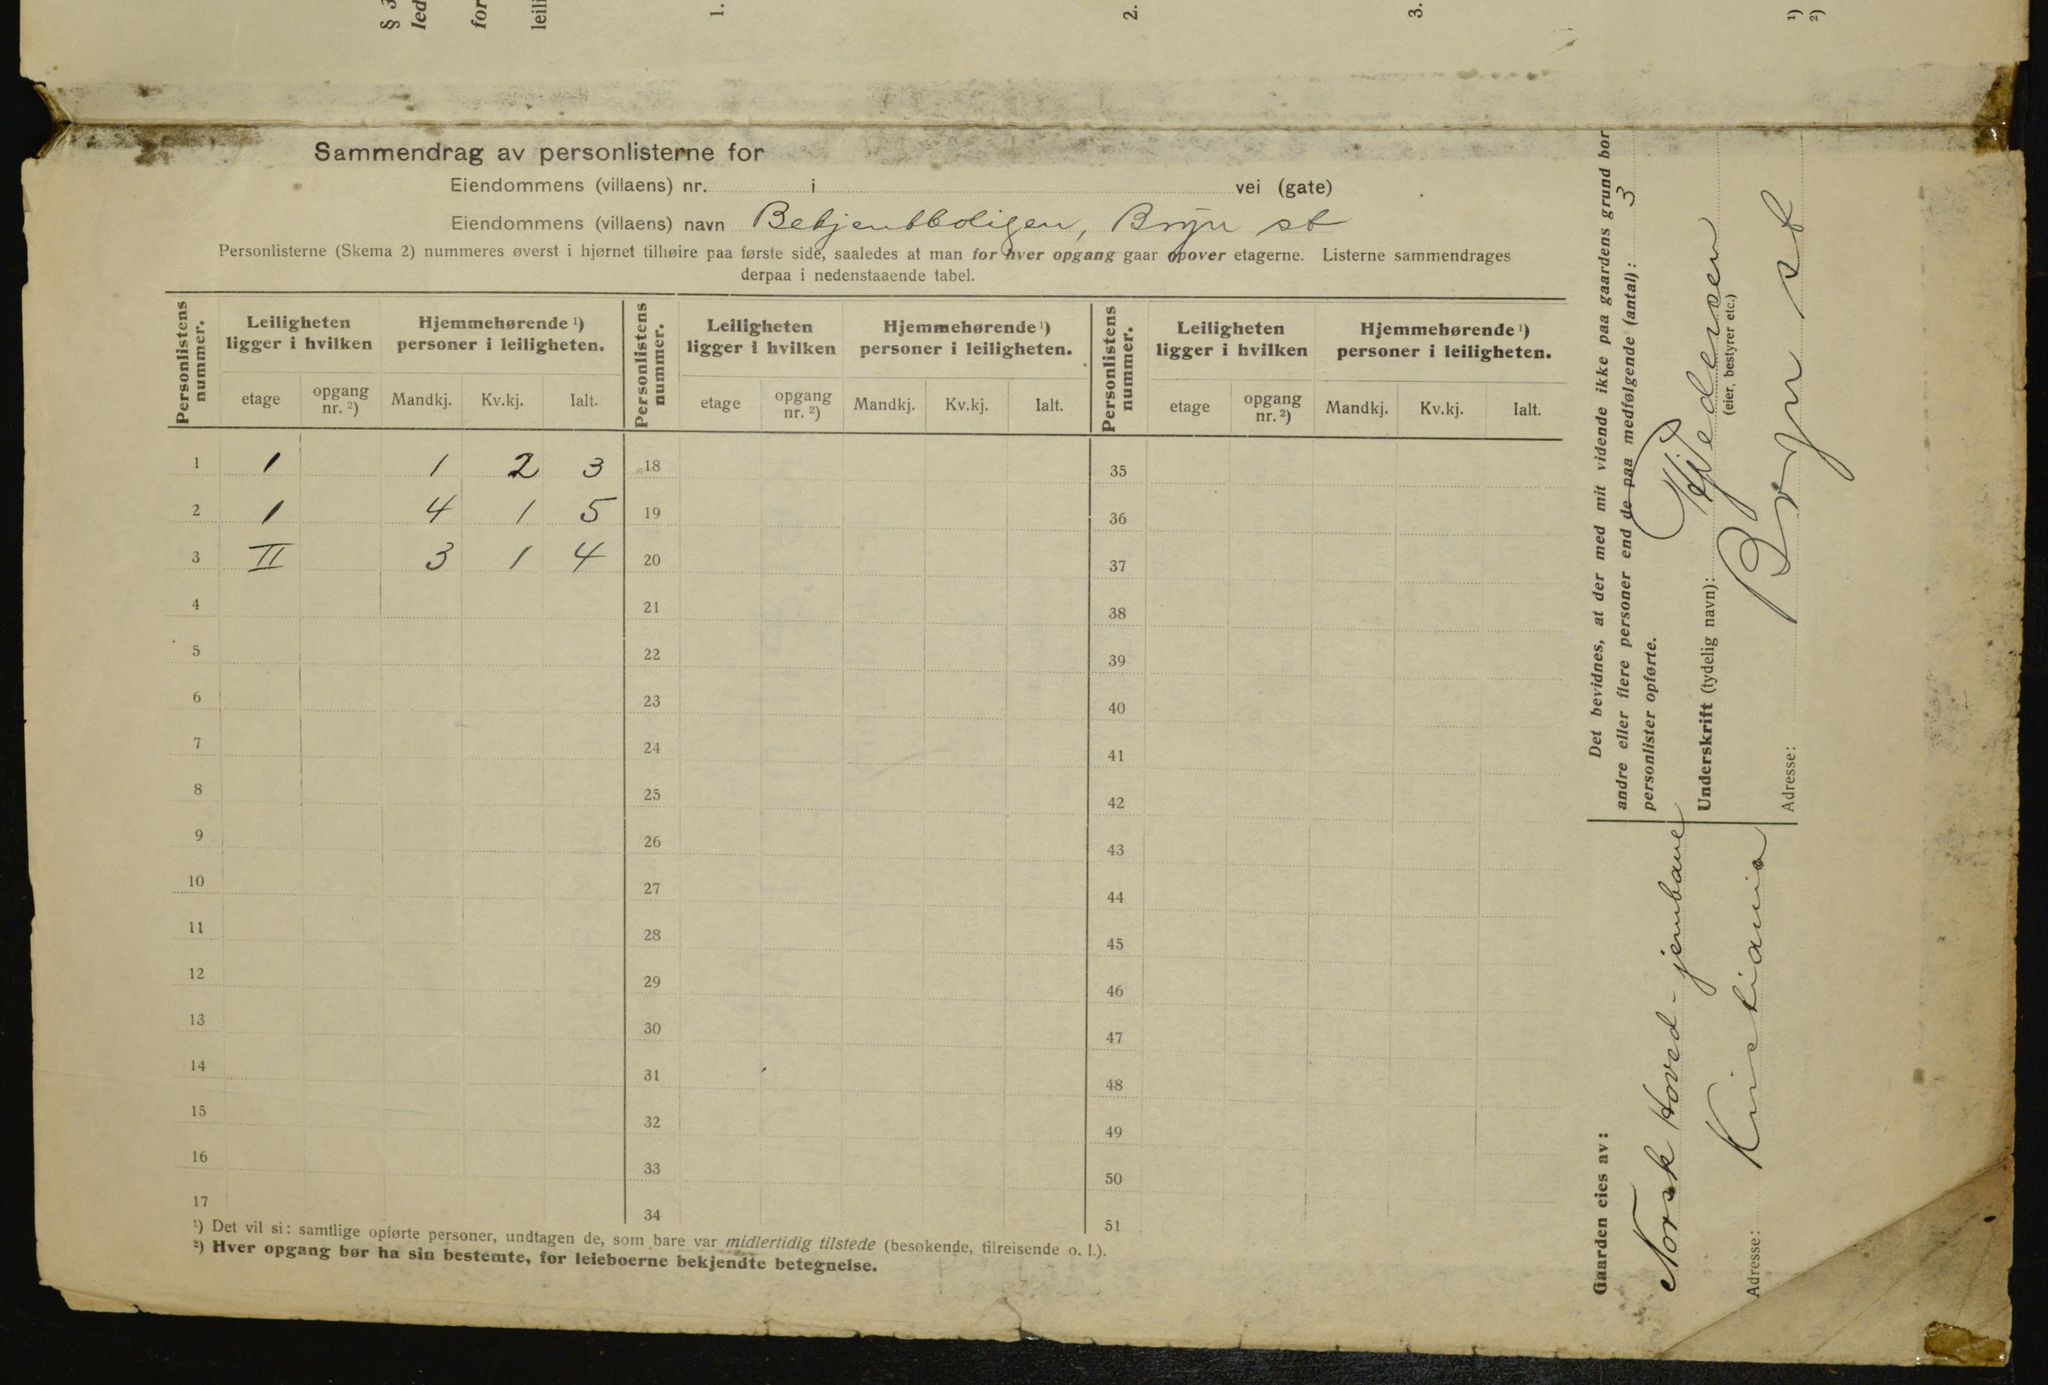 § 3
led
for
leili
1.
2.
3.
¹)
²)
Sammendrag av personlisterne for
Eiendommens (villaens) nr. i vei (gate)
Eiendommens (villaens) navn Betjentboligen, Bryn st
Personlisterne (Skema 2) nummeres øverst i hjørnet tilhøire paa første side, saaledes at man for hver opgang gaar opover etagerne. Listerne sammendrages
derpaa i nedenstaaende tabel.
Personlistens nummer. Leiligheten ligger i hvilken Hjemmehørende ¹) personer i leiligheten. Personlistens nummer. Leiligheten ligger i hvilken Hjemmehørende ¹) personer i leiligheten. Personlistens nummer. Leiligheten ligger i hvilken Hjemmehørende ¹) personer i leiligheten.
etage opgang nr. ²) Mandkj. Kv.kj. Ialt. etage opgang nr. ²) Mandkj. Kv.kj. Ialt. etage opgang nr. ²) Mandkj. Kv.kj. Ialt.
1 1 1 2 3 18 35
2 1 4 1 5 19 36
3 II 3 1 4 20 37
4 21 38
5 22 39
6 23 40
7 24 41
8 25 42
9 26 43
10 27 44
11 28 45
12 29 46
13 30 47
14 31 48
15 32 49
16 33 50
17 34 51
¹) Det vil si: samtlige opførte personer, undtagen de, som bare var midlertidig tilstede (besøkende, tilreisende o. l.).
²) Hver opgang bør ha sin bestemte, for leieboerne bekjendte betegnelse.
Det bevidnes, at der med mit vidende ikke paa gaardens grund bor
andre eller flere personer end de paa medfølgende (antal): 3
personlister opførte.
Underskrift (tydelig navn): Pedersen
(eier, bestyrer etc.)
Adresse: Bryn st
Gaarden eies av:
Norsk Hoved-jernbane
Adresse: Kristiania